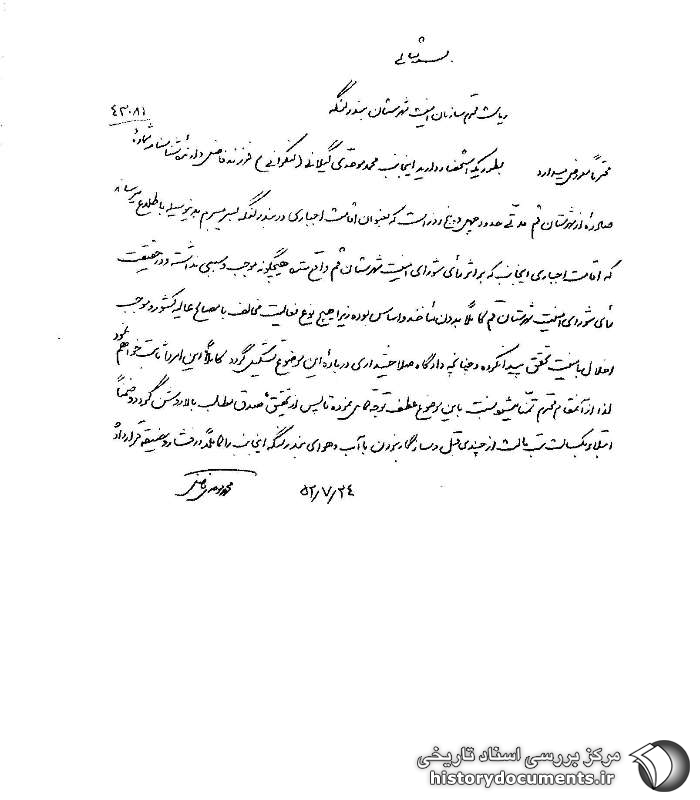 بسمه تعالی
ریاست محترم سازمان امنیت شهرستان بندرلنگه
۴۳۰۸۱
محترماً معروض میدارد بطوریکه استحضار دارید اینجانب محمد موحدی گیلانی (لنکرانی) فرزند فاضل دارنده شناسنامه شماره
صادره از شهرستان قم مدتی حدود چهل و پنج روز است که بعنوان اقامت اجباری در بندرلنگه بسر میبرم بدینوسیله باطلاع میرساند
که اقامت اجباری اینجانب که بر اثر رأی شورای امنیت شهرستان قم واقع شده هیچگونه موجب و سببی نداشته و در حقیقت
رأی شورای امنیت شهرستان قم کاملاً بدون مأخذ و اساس بوده زیرا هیچ نوع فعالیت مخالف با مصالح عالیه کشور و موجب
اخلال بامنیت تحقق پیدا نکرده و چنانچه دادگاه صلاحیتداری درباره این موضوع تشکیل گردد کاملاً این امر را ثابت خواهم نمود
لذا از آنمقام محترم تمنا میشود نسبت باین موضوع عطف توجه خاصی نموده تا پس از تحقیق صدق مطلب بالا روشن گردد و ضمناً
ابتلاء بکسالت تب مالت از چندی قبل و سازگار نبودن با آب و هوای بندرلنگه اینجانب را کاملاً در فشار و مضیقه قرار داده
۵۲/۷/۲۴
محمد موحدی فاضل
مرکز بررسی اسناد تاریخی
historydocuments.ir